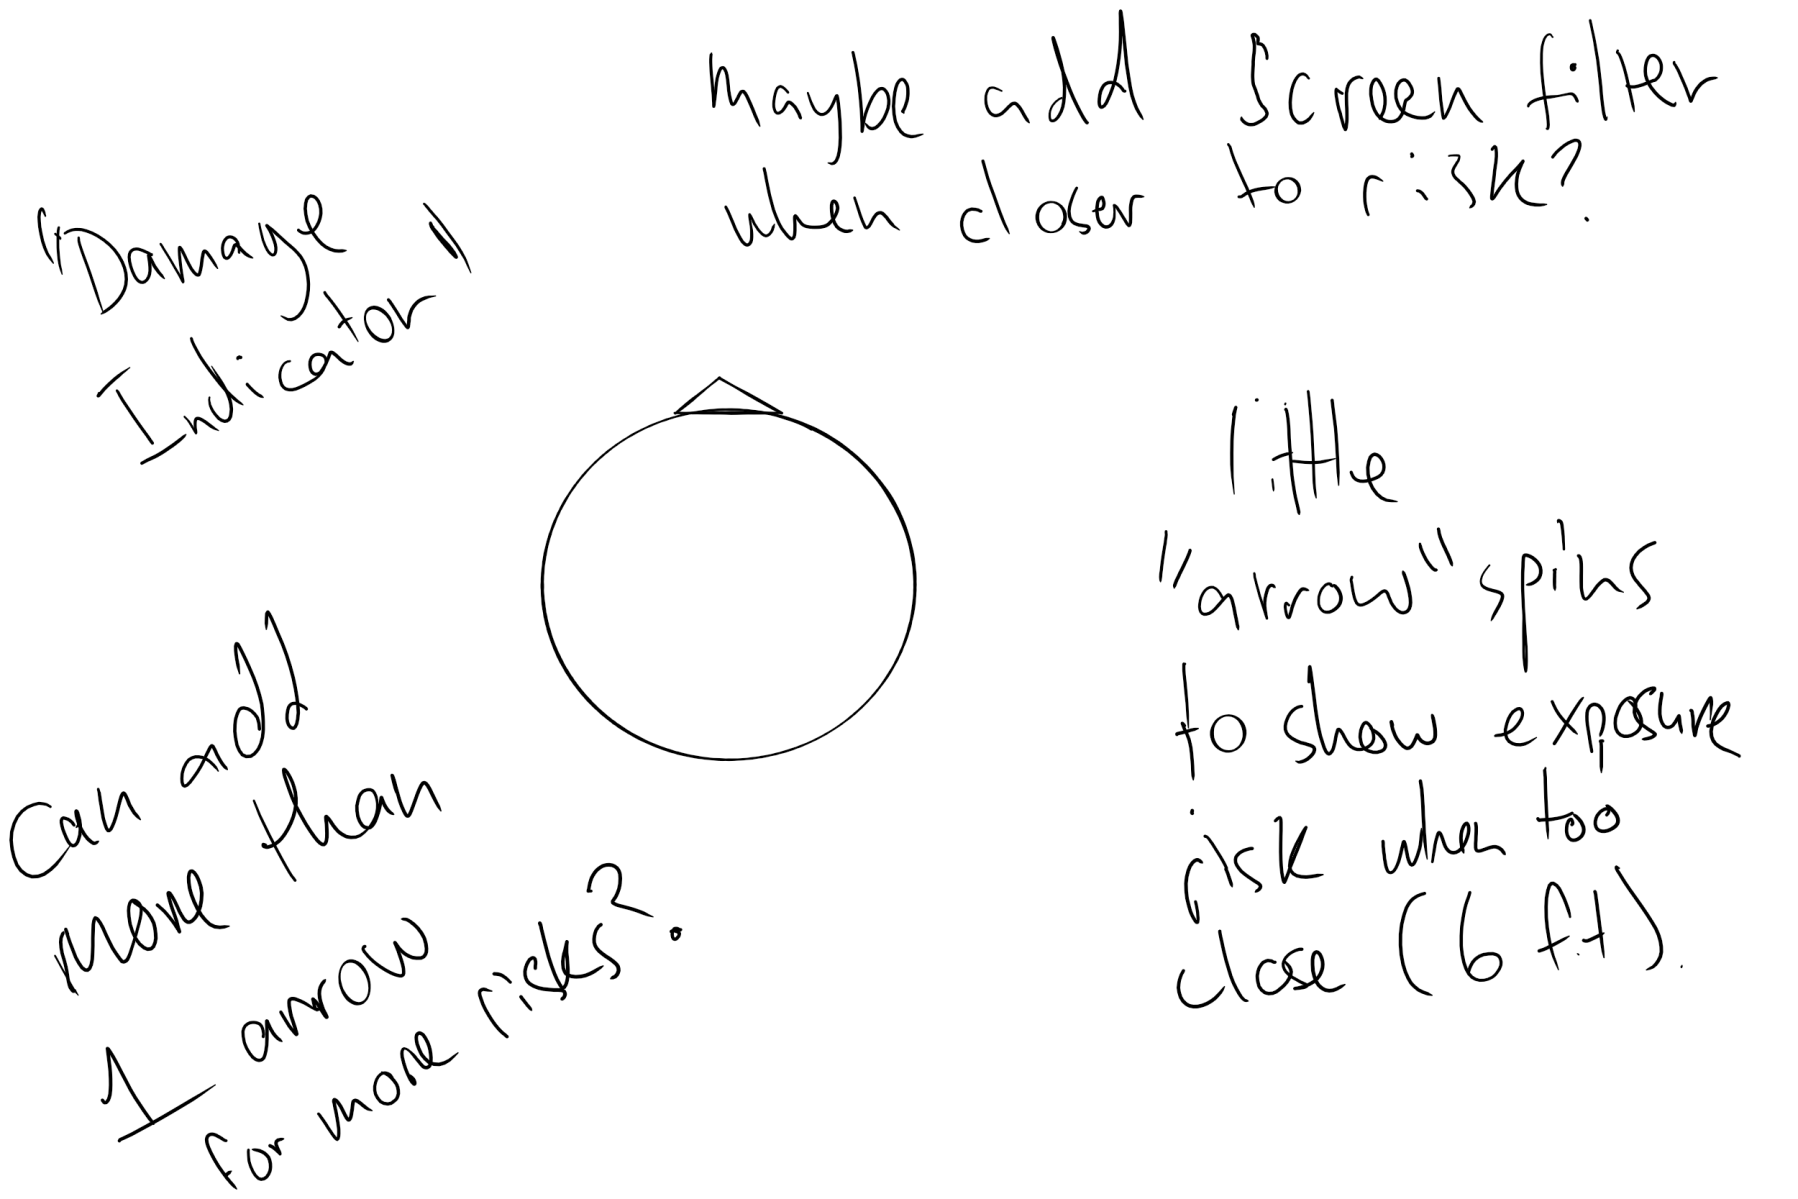 maybe add screen filter
when closer to risk?
"Damage
Indicator"
little
"arrow" spins
to show exposure
risk when too
close (6 ft).
Can add
more than
1 arrow
for more risks?